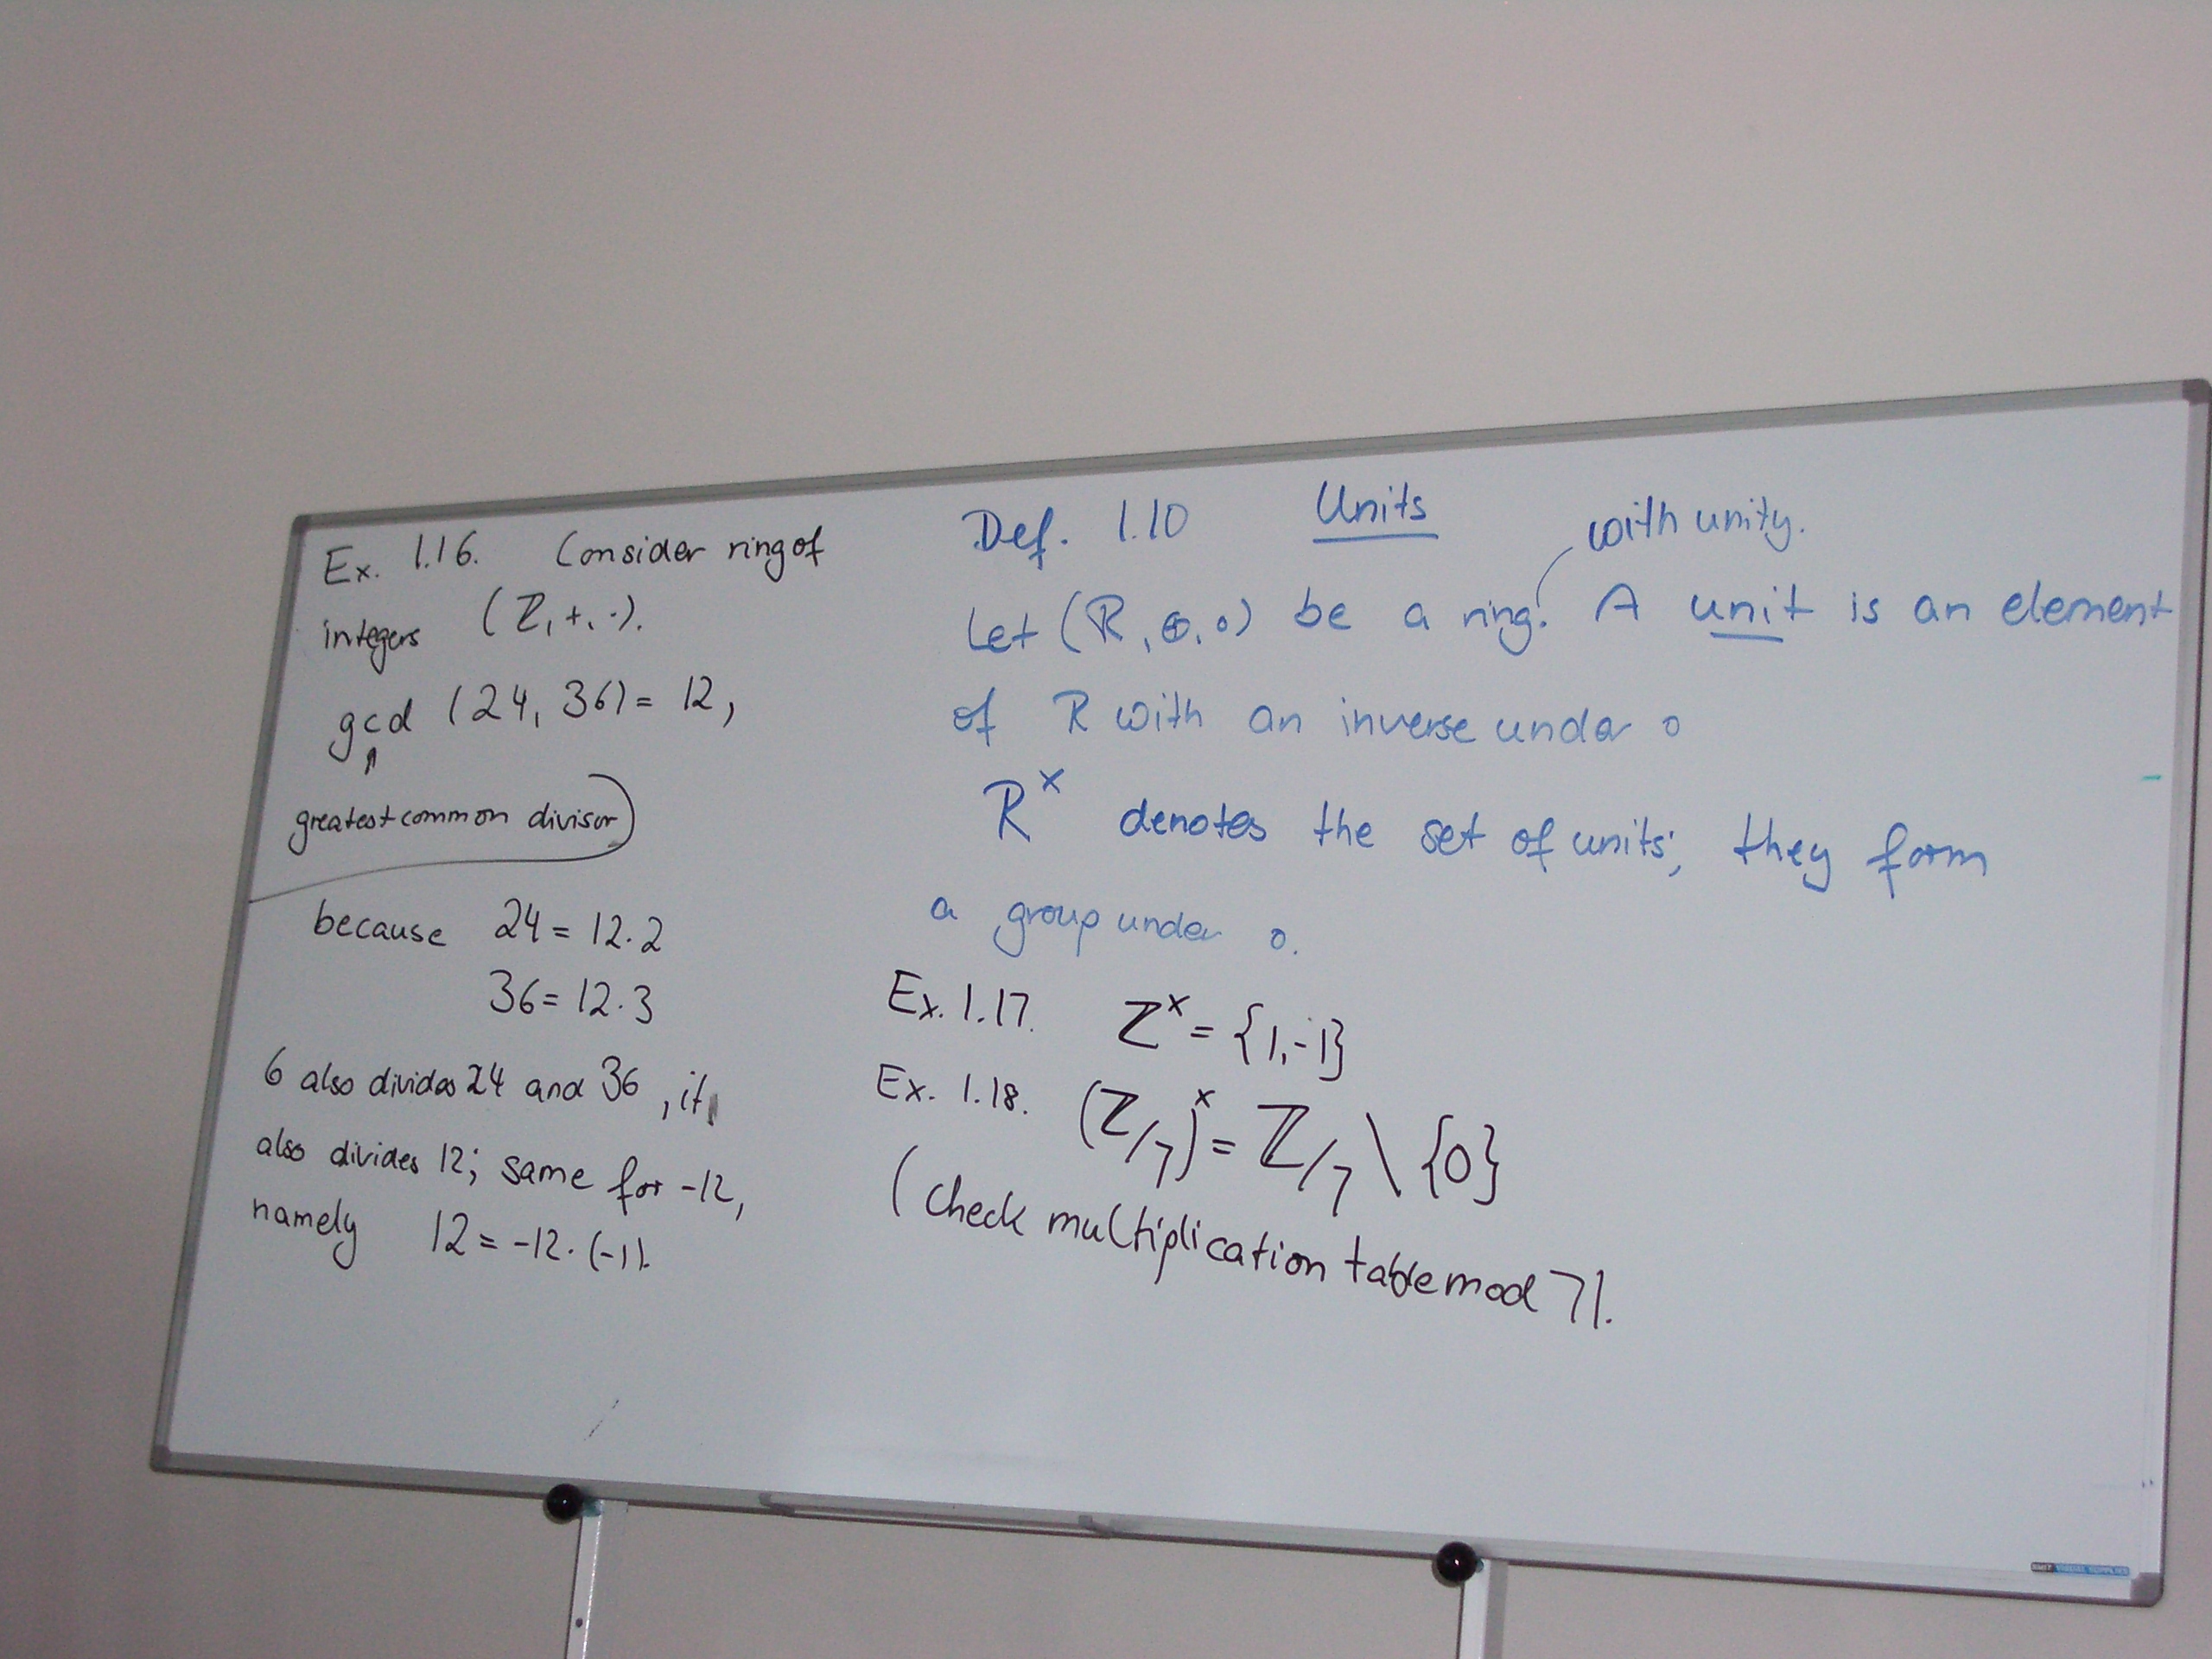 Ex. 1.16. Consider ring of
integers (ℤ, +, ·).
gcd (24, 36) = 12,
↑
greatest common divisor
because 24 = 12·2
36 = 12·3
6 also divides 24 and 36, it
also divides 12; same for -12,
namely 12 = -12·(-1).
Def. 1.10 Units
with unity.
Let (R, ⊕, ∘) be a ring. A unit is an element
of R with an inverse under ∘
R^× denotes the set of units; they form
a group under ∘.
Ex. 1.17. ℤ^× = {1, -1}
Ex. 1.18. (ℤ/7)^× = ℤ/7 \ {0}
(Check multiplication table mod 7).